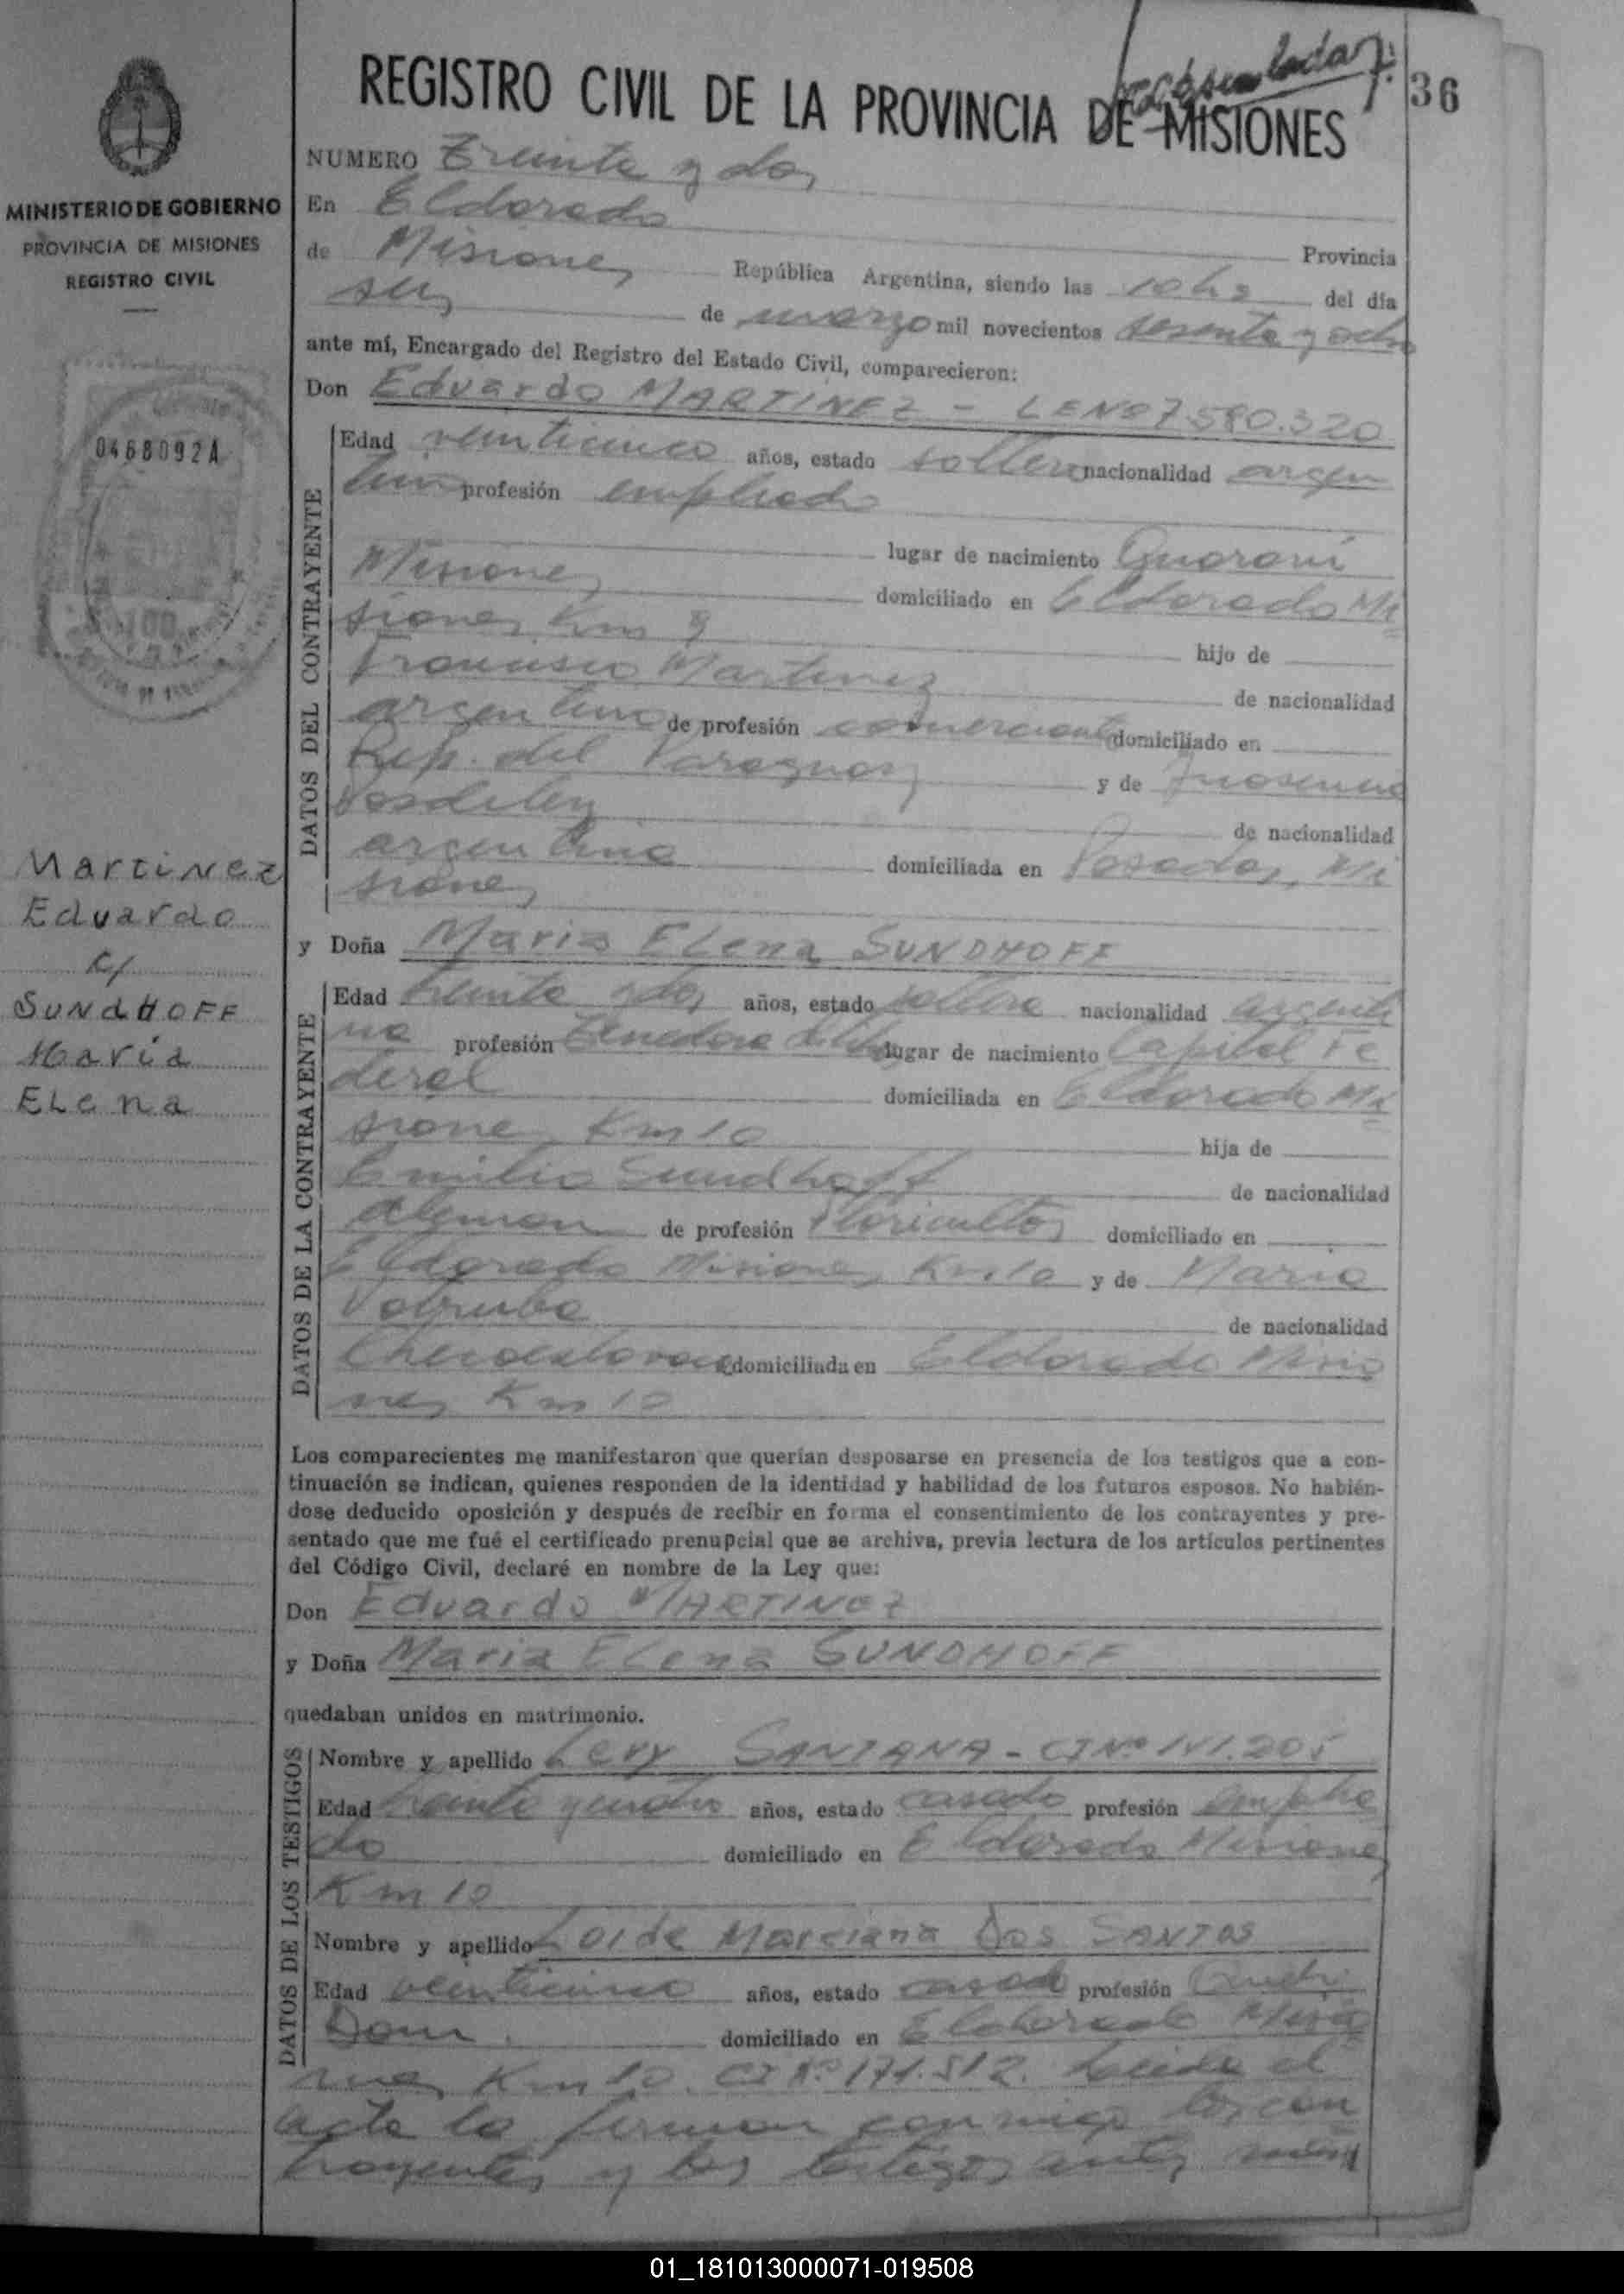 REGISTRO CIVIL DE LA PROVINCIA DE MISIONES
36
MINISTERIO DE GOBIERNO
PROVINCIA DE MISIONES
REGISTRO CIVIL
0468092A
100
Martinez
Eduardo
c/
SUNdHOFF
María
ELena
NUMERO Treinta y dos
En Eldorado
Provincia
de Misiones República Argentina, siendo las 10 hs del día
seis de marzo mil novecientos sesenta y ocho
ante mí, Encargado del Registro del Estado Civil, comparecieron:
Don Eduardo MARTINEZ - LENº 7.580.320
DATOS DEL CONTRAYENTE
Edad veinticinco años, estado soltero nacionalidad argen
tino profesión empleado
lugar de nacimiento Guaraní
Misiones domiciliado en Eldorado Mi
siones Km 9
hijo de
Francisco Martinez
de nacionalidad
argentino de profesión comerciante domiciliado en
Rep. del Paraguay y de
de nacionalidad
argentina domiciliada en Posadas, Mi
siones
y Doña Maria ELena SUNDHOFF
DATOS DE LA CONTRAYENTE
Edad treinta y dos años, estado soltera nacionalidad argenti
na profesión Tenedora de lib. lugar de nacimiento Capital Fe
deral domiciliada en Eldorado Mi
siones Km 10
hija de
Emilio Sundhoff
de nacionalidad
Aleman de profesión Floricultor domiciliado en
Eldorado Misiones Km 10 y de Maria
de nacionalidad
domiciliada en Eldorado Misio
nes Km 10
Los comparecientes me manifestaron que querían desposarse en presencia de los testigos que a con-
tinuación se indican, quienes responden de la identidad y habilidad de los futuros esposos. No habién-
dose deducido oposición y después de recibir en forma el consentimiento de los contrayentes y pre-
sentado que me fué el certificado prenupcial que se archiva, previa lectura de los artículos pertinentes
del Código Civil, declaré en nombre de la Ley que:
Don Eduardo MARTINEZ
y Doña Maria ELena SUNDHOFF
quedaban unidos en matrimonio.
DATOS DE LOS TESTIGOS
Nombre y apellido Levy SANTANA - CI Nº 141.205
Edad treinta y cuatro años, estado casado profesión emplea
do domiciliado en Eldorado Misiones
Km 10
Nombre y apellido Loide Marciana Dos SANTOS
Edad veinticinco años, estado casada profesión Queh.
Dom. domiciliado en Eldorado Misio
nes Km 10. CI Nº 171.512. Leída el
acta la firman conmigo los con
trayentes y los testigos antes
01_181013000071-019508